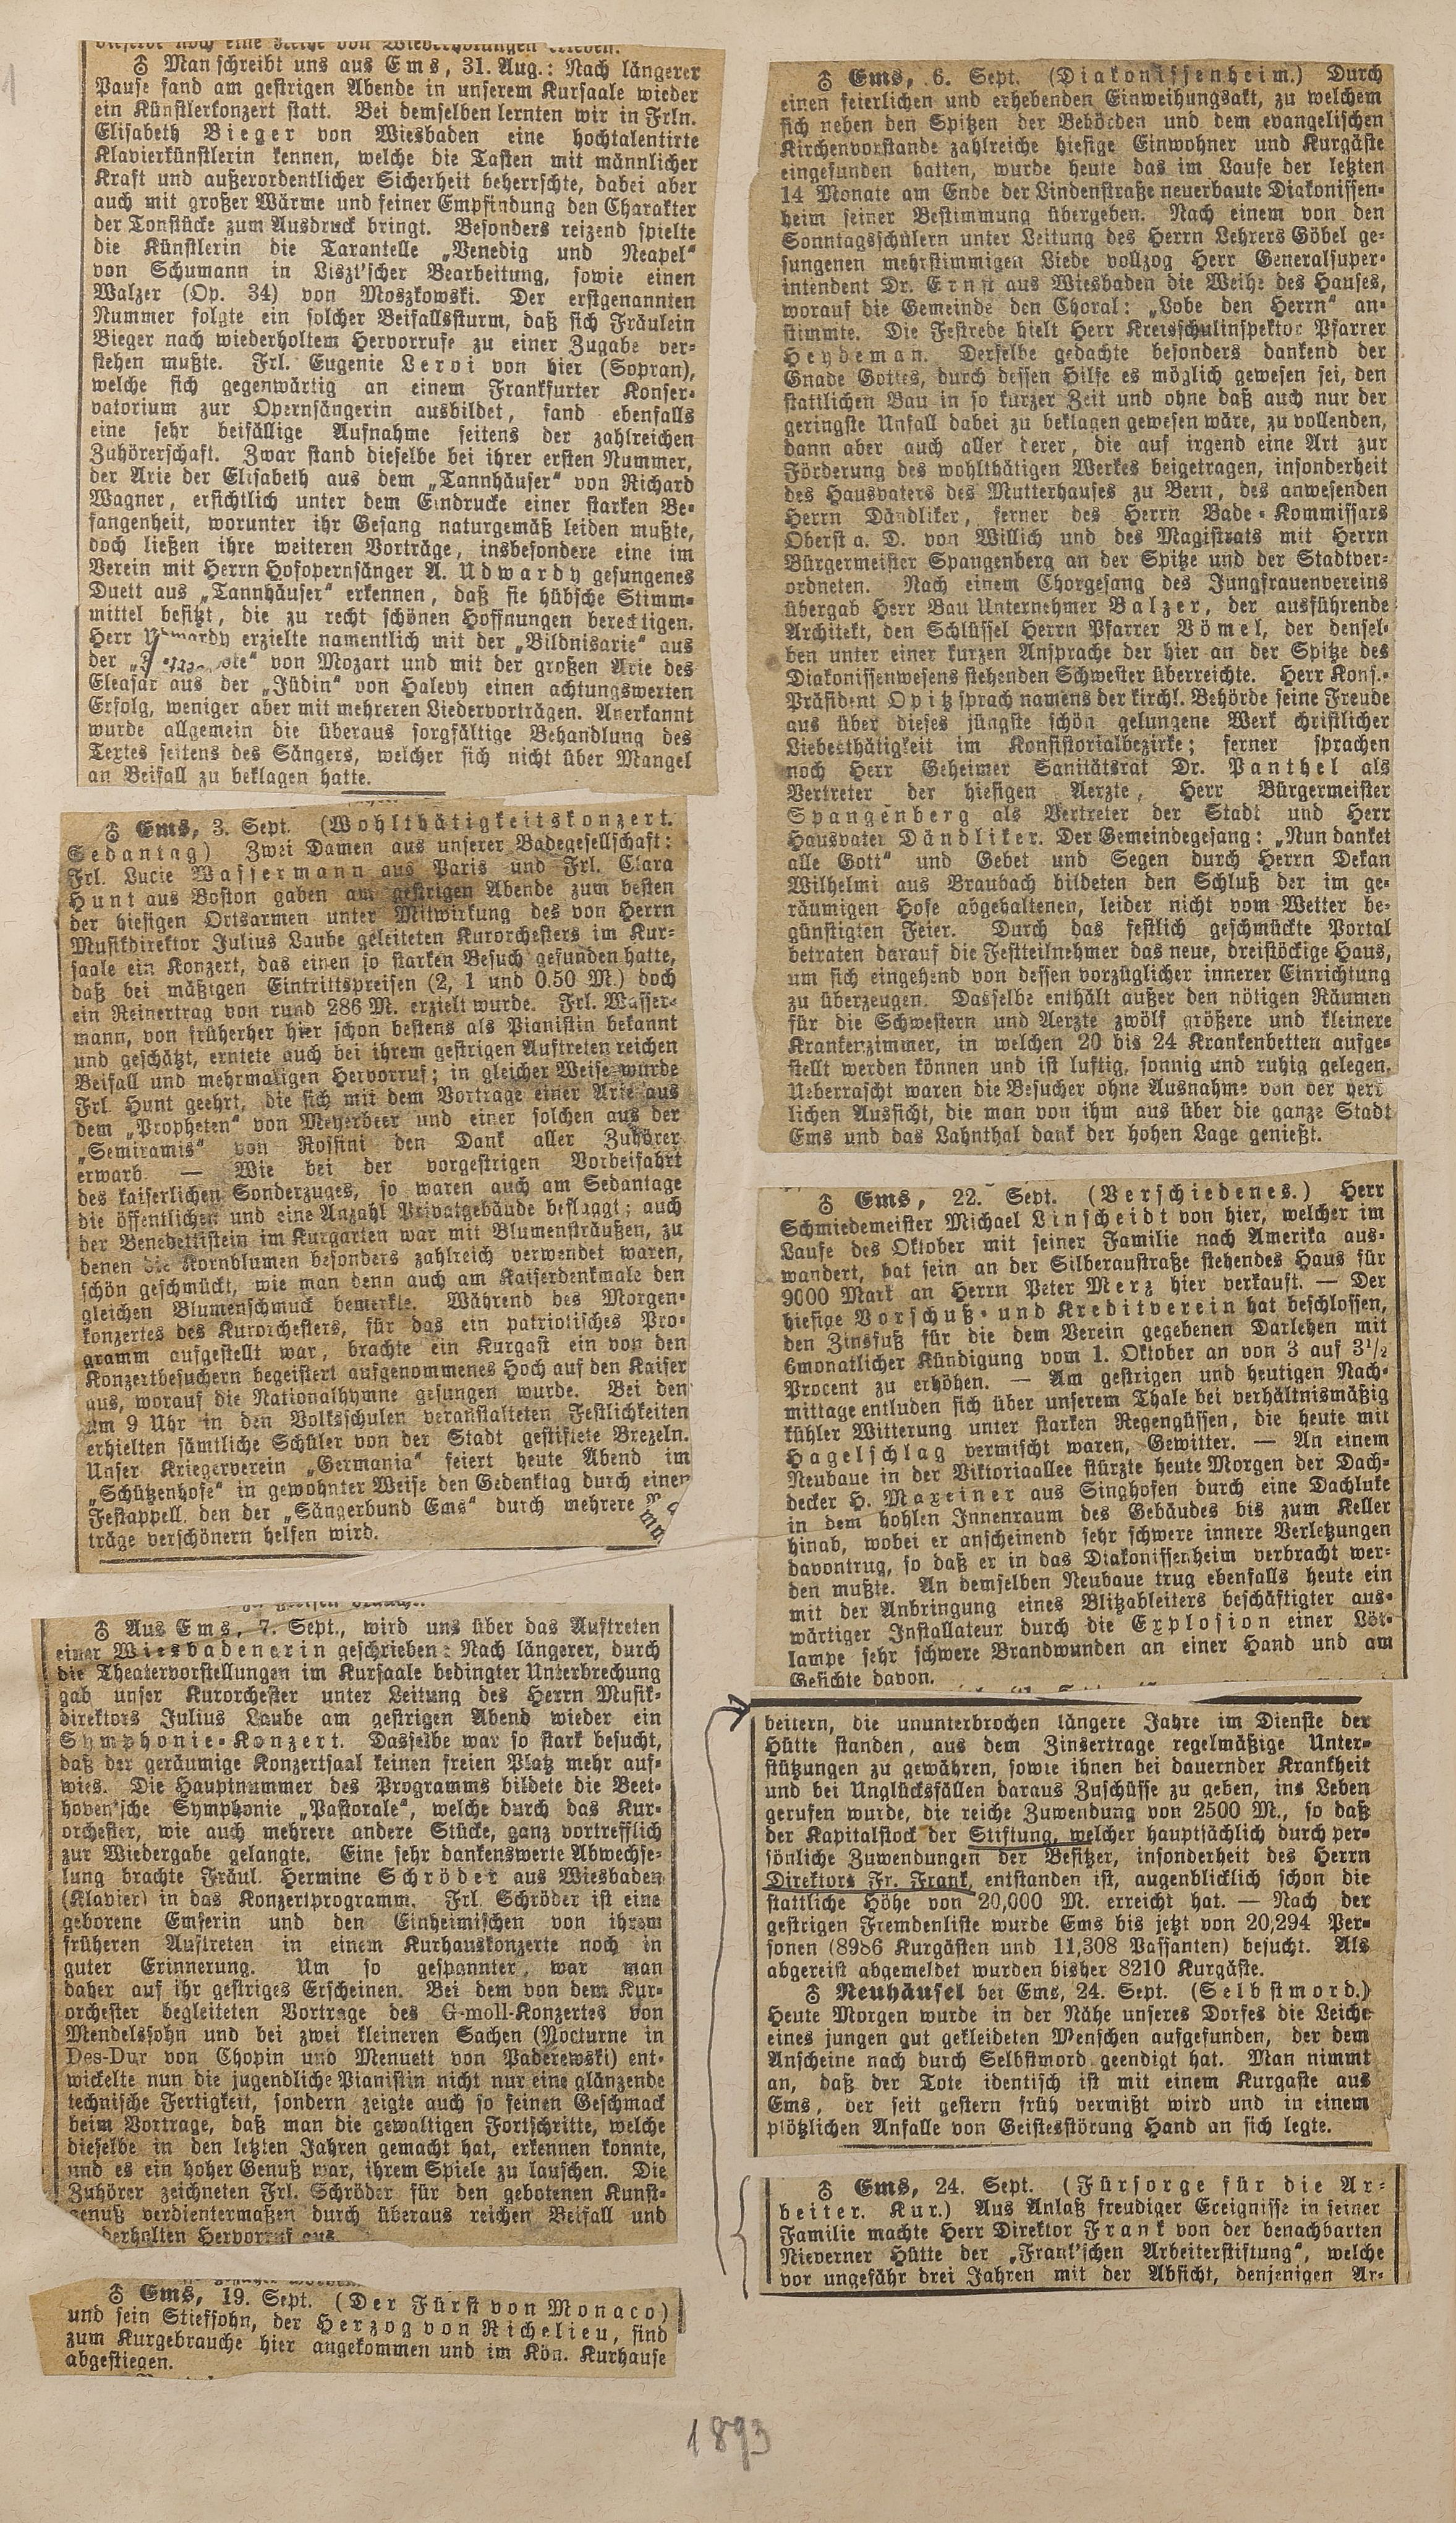 ♁ Man schreibt uns aus Ems, 31. Aug.: Nach längerer
Pause fand am gestrigen Abende in unserem Kursaale wieder
ein Künstlerkonzert statt. Bei demselben lernten wir in Frln.
Elisabeth Bieger von Wiesbaden eine hochtalentirte
Klavierkünstlerin kennen, welche die Tasten mit männlicher
Kraft und außerordentlicher Sicherheit beherrschte, dabei aber
auch mit großer Wärme und feiner Empfindung den Charakter
der Tonstücke zum Ausdruck bringt. Besonders reizend spielte
die Künstlerin die Tarantelle „Venedig und Neapel“
von Schumann in Liszt'scher Bearbeitung, sowie einen
Walzer (Op. 34) von Moszkowski. Der erstgenannten
Nummer folgte ein solcher Beifallssturm, daß sich Fräulein
Bieger nach wiederholtem Hervorrufe zu einer Zugabe ver-
stehen mußte. Frl. Eugenie Leroi von hier (Sopran),
welche sich gegenwärtig an einem Frankfurter Konser-
vatorium zur Opernsängerin ausbildet, fand ebenfalls
eine sehr beifällige Aufnahme seitens der zahlreichen
Zuhörerschaft. Zwar stand dieselbe bei ihrer ersten Nummer,
der Arie der Elisabeth aus dem „Tannhäuser“ von Richard
Wagner, ersichtlich unter dem Eindrucke einer starken Be-
fangenheit, worunter ihr Gesang naturgemäß leiden mußte,
doch ließen ihre weiteren Vorträge, insbesondere eine im
Verein mit Herrn Hofopernsänger A. Udwardy gesungenes
Duett aus „Tannhäuser“ erkennen, daß sie hübsche Stimm-
mittel besitzt, die zu recht schönen Hoffnungen berechtigen.
Herr Udwardy erzielte namentlich mit der „Bildnisarie“ aus
der von Mozart und mit der großen Arie des
Eleasar aus der „Jüdin“ von Halevy einen achtungswerten
Erfolg, weniger aber mit mehreren Liedervorträgen. Anerkannt
wurde allgemein die überaus sorgfältige Behandlung des
Textes seitens des Sängers, welcher sich nicht über Mangel
an Beifall zu beklagen hatte.
♁ Ems, 3. Sept. (Wohlthätigkeitskonzert.
Sedantag) Zwei Damen aus unserer Badegesellschaft:
Frl. Lucie Wassermann aus Paris und Frl. Clara
Hunt aus Boston gaben am gestrigen Abende zum besten
der hiesigen Ortsarmen unter Mitwirkung des von Herrn
Musikdirektor Julius Laube geleiteten Kurorchesters im Kur-
saale ein Konzert, das einen so starken Besuch gefunden hatte,
daß bei mäßigen Eintrittspreisen (2, 1 und 0.50 M.) doch
ein Reinertrag von rund 286 M. erzielt wurde. Frl. Wasser-
mann, von früherher hier schon bestens als Pianistin bekannt
und geschätzt, erntete auch bei ihrem gestrigen Auftreten reichen
Beifall und mehrmaligen Hervorruf; in gleicher Weise wurde
Frl. Hunt geehrt, die sich mit dem Vortrage einer Arie aus
dem „Propheten“ von Meyerbeer und einer solchen aus der
„Semiramis“ von Rossini den Dank aller Zuhörer
erwarb. — Wie bei der vorgestrigen Vorbeifahrt
des kaiserlichen Sonderzuges, so waren auch am Sedantage
die öffentlichen und eine Anzahl Privatgebäude beflaggt; auch
der Benedettistein im Kurgarten war mit Blumensträußen, zu
denen die Kornblumen besonders zahlreich verwendet waren,
schön geschmückt, wie man denn auch am Kaiserdenkmale den
gleichen Blumenschmuck bemerkte. Während des Morgen-
konzertes des Kurorchesters, für das ein patriotisches Pro-
gramm aufgestellt war, brachte ein Kurgast ein von den
Konzertbesuchern begeistert aufgenommenes Hoch auf den Kaiser
aus, worauf die Nationalhymne gesungen wurde. Bei den
um 9 Uhr in den Volksschulen veranstalteten Festlichkeiten
erhielten sämtliche Schüler von der Stadt gestiftete Brezeln.
Unser Kriegerverein „Germania“ feiert heute Abend im
„Schützenhofe“ in gewohnter Weise den Gedenktag durch einen
Festappell, den der „Sängerbund Ems“ durch mehrere
träge verschönern helfen wird.
♁ Aus Ems, 7. Sept., wird uns über das Auftreten
einer Wiesbadenerin geschrieben: Nach längerer, durch
die Theatervorstellungen im Kursaale bedingter Unterbrechung
gab unser Kurorchester unter Leitung des Herrn Musik-
direktors Julius Laube am gestrigen Abend wieder ein
Symphonie-Konzert. Dasselbe war so stark besucht,
daß der geräumige Konzertsaal keinen freien Platz mehr auf-
wies. Die Hauptnummer des Programms bildete die Beet-
hoven'sche Symphonie „Pastorale“, welche durch das Kur-
orchester, wie auch mehrere andere Stücke, ganz vortrefflich
zur Wiedergabe gelangte. Eine sehr dankenswerte Abwechse-
lung brachte Fräul. Hermine Schröder aus Wiesbaden
(Klavier) in das Konzertprogramm. Frl. Schröder ist eine
geborene Emserin und den Einheimischen von ihrem
früheren Auftreten in einem Kurhauskonzerte noch in
guter Erinnerung. Um so gespannter war man
daher auf ihr gestriges Erscheinen. Bei dem von dem Kur-
orchester begleiteten Vortrage des G-moll-Konzertes von
Mendelssohn und bei zwei kleineren Sachen (Nocturne in
Des-Dur von Chopin und Menuett von Paderewski) ent-
wickelte nun die jugendliche Pianistin nicht nur eine glänzende
technische Fertigkeit, sondern zeigte auch so feinen Geschmack
beim Vortrage, daß man die gewaltigen Fortschritte, welche
dieselbe in den letzten Jahren gemacht hat, erkennen konnte,
und es ein hoher Genuß war, ihrem Spiele zu lauschen. Die
Zuhörer zeichneten Frl. Schröder für den gebotenen Kunst-
genuß verdientermaßen durch überaus reichen Beifall und
derholten Hervorruf aus.
♁ Ems, 19. Sept. (Der Fürst von Monaco)
und sein Stiefsohn, der Herzog von Richelieu, sind
zum Kurgebrauche hier angekommen und im Kön. Kurhause
abgestiegen.
♁ Ems, 6. Sept. (Diakonissenheim.) Durch
einen feierlichen und erhebenden Einweihungsakt, zu welchem
sich neben den Spitzen der Behörden und dem evangelischen
Kirchenvorstande zahlreiche hiesige Einwohner und Kurgäste
eingefunden hatten, wurde heute das im Laufe der letzten
14 Monate am Ende der Lindenstraße neuerbaute Diakonissen-
heim seiner Bestimmung übergeben. Nach einem von den
Sonntagsschülern unter Leitung des Herrn Lehrers Göbel ge-
sungenen mehrstimmigen Liede vollzog Herr Generalsuper-
intendent Dr. Ernst aus Wiesbaden die Weihe des Hauses,
worauf die Gemeinde den Choral: „Lobe den Herrn“ an-
stimmte. Die Festrede hielt Herr Kreisschulinspektor Pfarrer
Heydeman. Derselbe gedachte besonders dankend der
Gnade Gottes, durch dessen Hilfe es möglich gewesen sei, den
stattlichen Bau in so kurzer Zeit und ohne daß auch nur der
geringste Unfall dabei zu beklagen gewesen wäre, zu vollenden,
dann aber auch aller derer, die auf irgend eine Art zur
Förderung des wohlthätigen Werkes beigetragen, insonderheit
des Hausvaters des Mutterhauses zu Bern, des anwesenden
Herrn Dändliker, ferner des Herrn Bade-Kommissars
Oberst a. D. von Willich und des Magistrats mit Herrn
Bürgermeister Spangenberg an der Spitze und der Stadtver-
ordneten. Nach einem Chorgesang des Jungfrauenvereins
übergab Herr Bau Unternehmer Balzer, der ausführende
Architekt, den Schlüssel Herrn Pfarrer Vömel, der densel-
ben unter einer kurzen Ansprache der hier an der Spitze des
Diakonissenwesens stehenden Schwester überreichte. Herr Kons.-
Präsident Opitz sprach namens der kirchl. Behörde seine Freude
aus über dieses jüngste schön gelungene Werk christlicher
Liebesthätigkeit im Konsistorialbezirke; ferner sprachen
noch Herr Geheimer Sanitätsrat Dr. Panthel als
Vertreter der hiesigen Aerzte, Herr Bürgermeister
Spangenberg als Vertreter der Stadt und Herr
Hausvater Dändliker. Der Gemeindegesang: „Nun danket
alle Gott“ und Gebet und Segen durch Herrn Dekan
Wilhelmi aus Braubach bildeten den Schluß der im ge-
räumigen Hofe abgehaltenen, leider nicht vom Wetter be-
günstigten Feier. Durch das festlich geschmückte Portal
betraten darauf die Festteilnehmer das neue, dreistöckige Haus,
um sich eingehend von dessen vorzüglicher innerer Einrichtung
zu überzeugen. Dasselbe enthält außer den nötigen Räumen
für die Schwestern und Aerzte zwölf größere und kleinere
Krankenzimmer, in welchen 20 bis 24 Krankenbetten aufge-
stellt werden können und ist luftig, sonnig und ruhig gelegen.
Ueberrascht waren die Besucher ohne Ausnahme von der herr-
lichen Aussicht, die man von ihm aus über die ganze Stadt
Ems und das Lahnthal dank der hohen Lage genießt.
♁ Ems, 22. Sept. (Verschiedenes.) Herr
Schmiedemeister Michael Linscheidt von hier, welcher im
Laufe des Oktober mit seiner Familie nach Amerika aus-
wandert, hat sein an der Silberaustraße stehendes Haus für
9000 Mark an Herrn Peter Merz hier verkauft. — Der
hiesige Vorschuß- und Kreditverein hat beschlossen,
den Zinsfuß für die dem Verein gegebenen Darlehen mit
6monatlicher Kündigung vom 1. Oktober an von 3 auf 3½
Procent zu erhöhen. — Am gestrigen und heutigen Nach-
mittage entluden sich über unserem Thale bei verhältnismäßig
kühler Witterung unter starken Regengüssen, die heute mit
Hagelschlag vermischt waren, Gewitter. — An einem
Neubaue in der Viktoriaallee stürzte heute Morgen der Dach-
decker H. Maxeiner aus Singhofen durch eine Dachluke
in dem hohlen Innenraum des Gebäudes bis zum Keller
hinab, wobei er anscheinend sehr schwere innere Verletzungen
davontrug, so daß er in das Diakonissenheim verbracht wer-
den mußte. An demselben Neubaue trug ebenfalls heute ein
mit der Anbringung eines Blitzableiters beschäftigter aus-
wärtiger Installateur durch die Explosion einer Löt-
lampe sehr schwere Brandwunden an einer Hand und am
Gesichte davon.
beitern, die ununterbrochen längere Jahre im Dienste der
Hütte standen, aus dem Zinsertrage regelmäßige Unter-
stützungen zu gewähren, sowie ihnen bei dauernder Krankheit
und bei Unglücksfällen daraus Zuschüsse zu geben, ins Leben
gerufen wurde, die reiche Zuwendung von 2500 M., so daß
der Kapitalstock der Stiftung, welcher hauptsächlich durch per-
sönliche Zuwendungen der Besitzer, insonderheit des Herrn
Direktors Fr. Frank, entstanden ist, augenblicklich schon die
stattliche Höhe von 20,000 M. erreicht hat. — Nach der
gestrigen Fremdenliste wurde Ems bis jetzt von 20,294 Per-
sonen (8986 Kurgästen und 11,308 Passanten) besucht. Als
abgereist abgemeldet wurden bisher 8210 Kurgäste.
♁ Neuhäusel bei Ems, 24. Sept. (Selbstmord.)
Heute Morgen wurde in der Nähe unseres Dorfes die Leiche
eines jungen gut gekleideten Menschen aufgefunden, der dem
Anscheine nach durch Selbstmord geendigt hat. Man nimmt
an, daß der Tote identisch ist mit einem Kurgaste aus
Ems, der seit gestern früh vermißt wird und in einem
plötzlichen Anfalle von Geistesstörung Hand an sich legte.
♁ Ems, 24. Sept. (Fürsorge für die Ar-
beiter. Kur.) Aus Anlaß freudiger Ereignisse in seiner
Familie machte Herr Direktor Frank von der benachbarten
Nieverner Hütte der „Frank'schen Arbeiterstiftung“, welche
vor ungefähr drei Jahren mit der Absicht, denjenigen Ar-
1893